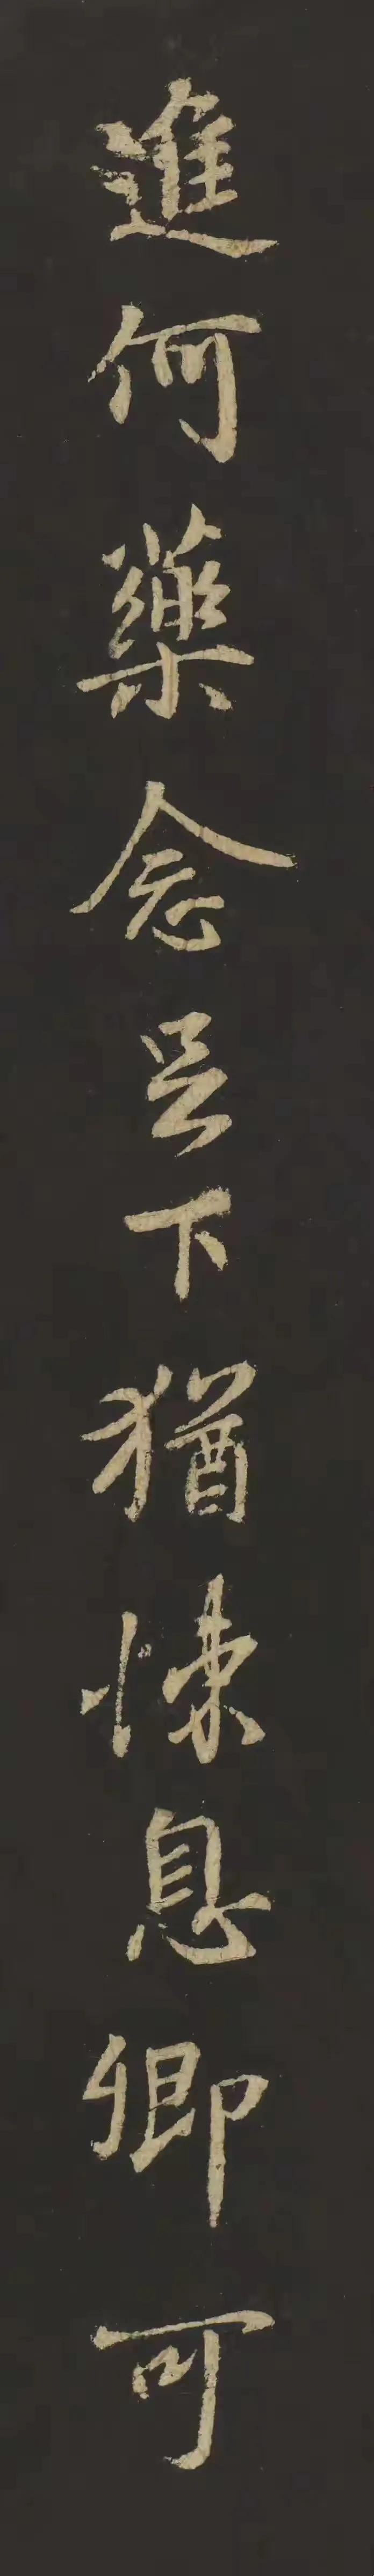 進何藥念足下猶悚息卿可